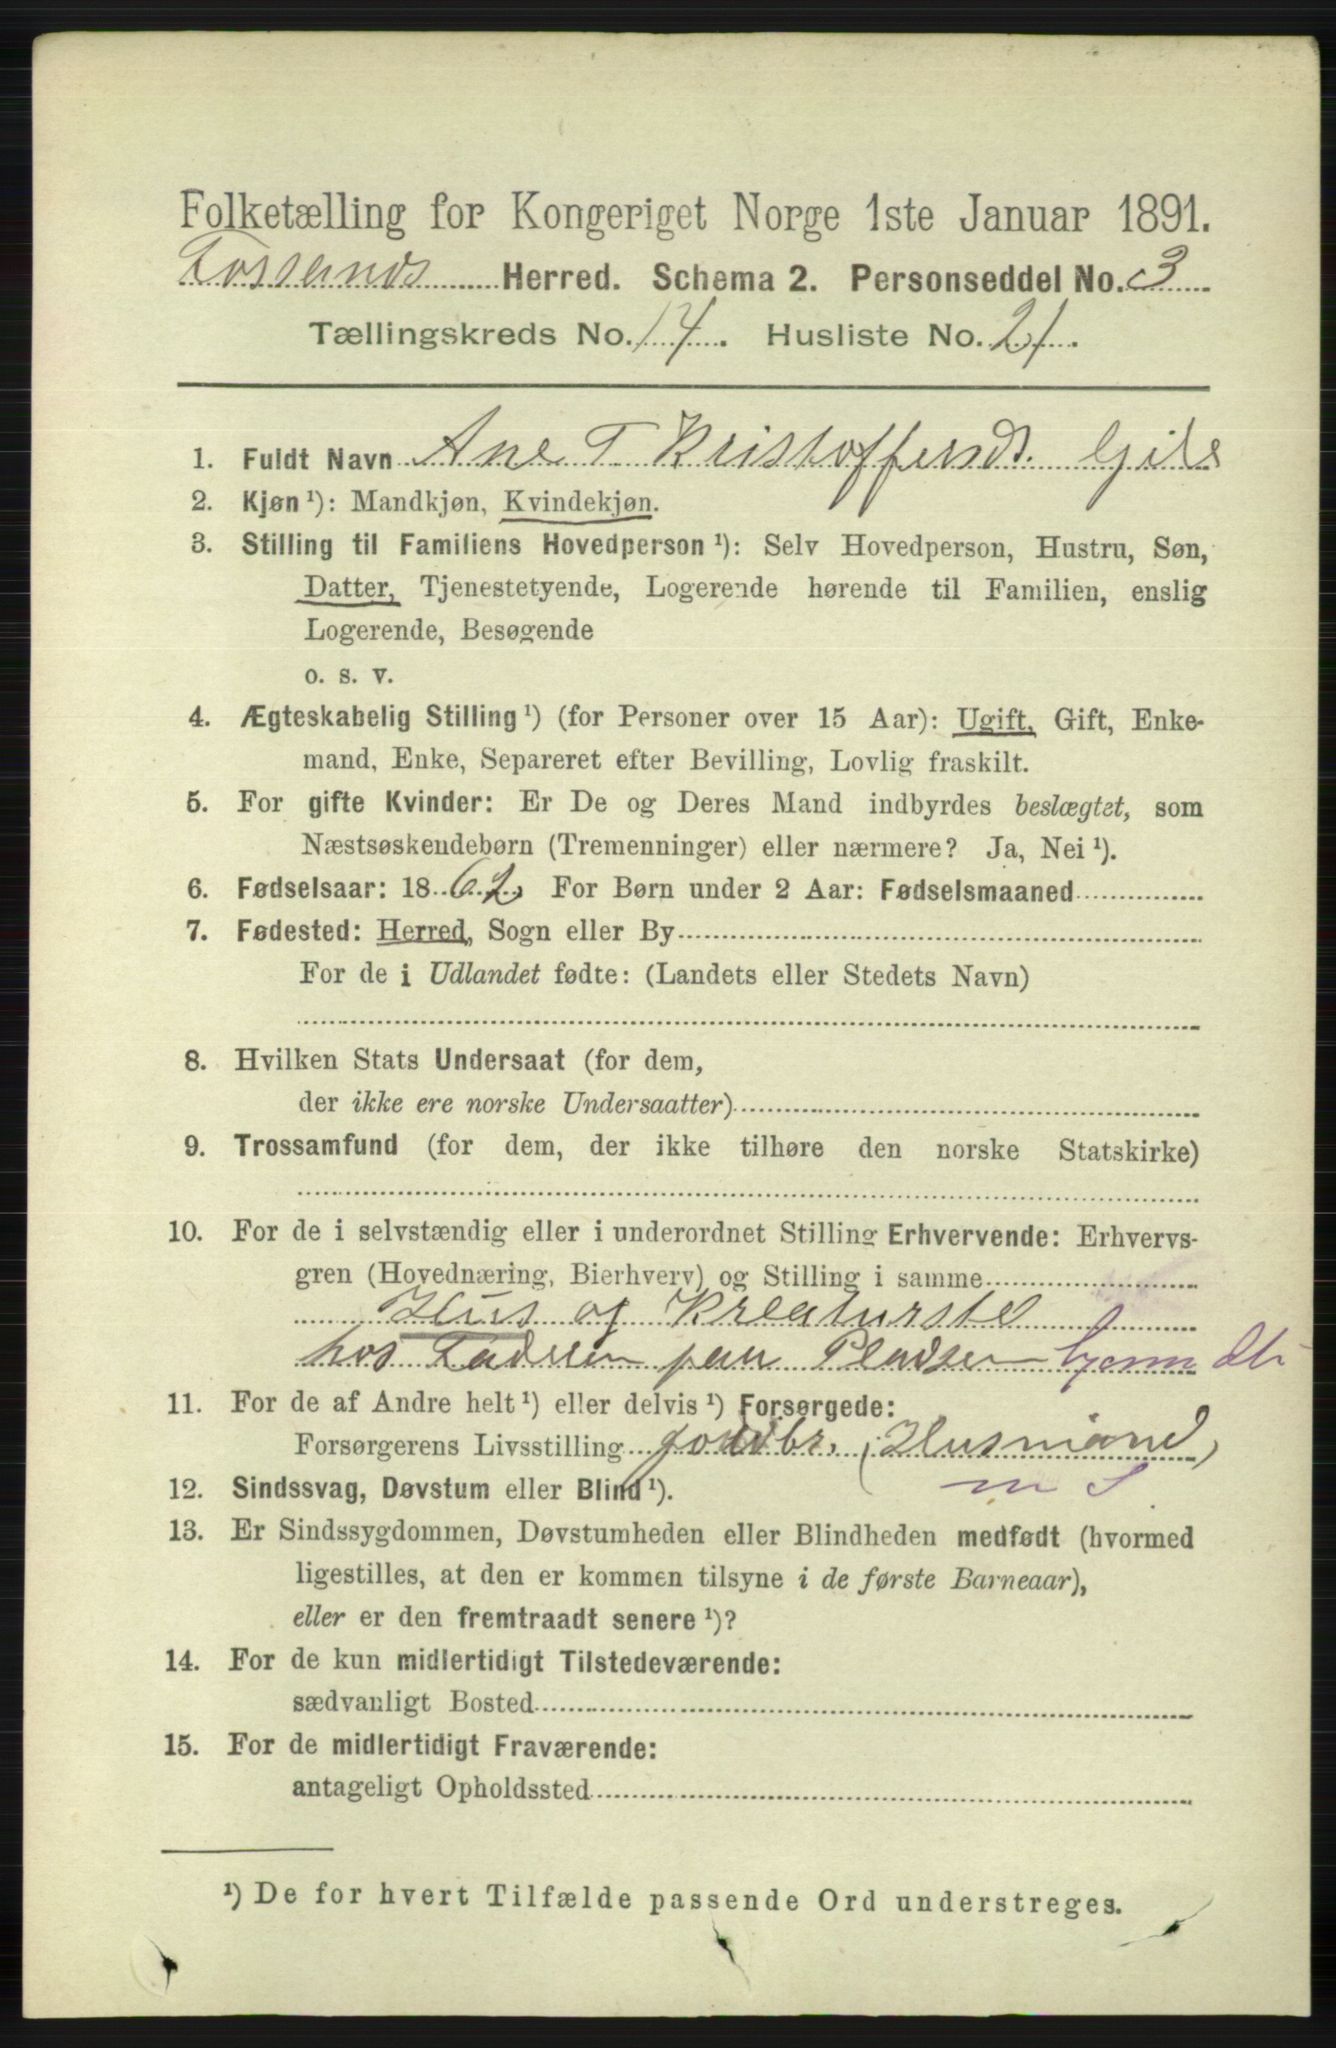 Folketælling for Kongeriget Norge 1ste Januar 1891.
Fossands Herred. Schema 2. Personseddel No. 3
Tællingskreds No. 14. Husliste No. 21.
1. Fuldt Navn Ane T Kristoffersd.
2. Kjøn ¹): Mandkjøn, Kvindekjøn.
3. Stilling til Familiens Hovedperson ¹): Selv Hovedperson, Hustru, Søn,
Datter, Tjenestetyende, Logerende hørende til Familien, enslig
Logerende, Besøgende
o. s. v.
4. Ægteskabelig Stilling ¹) (for Personer over 15 Aar): Ugift, Gift, Enke-
mand, Enke, Separeret efter Bevilling, Lovlig fraskilt.
5. For gifte Kvinder: Er De og Deres Mand indbyrdes beslægtet, som
Næstsøskendebørn (Tremenninger) eller nærmere? Ja, Nei ¹).
6. Fødselsaar: 1862 For Børn under 2 Aar: Fødselsmaaned
7. Fødested: Herred, Sogn eller By
For de i Udlandet fødte: (Landets eller Stedets Navn)
8. Hvilken Stats Undersaat (for dem,
der ikke ere norske Undersaatter)
9. Trossamfund (for dem, der ikke tilhøre den norske Statskirke)
10. For de i selvstændig eller i underordnet Stilling Erhvervende: Erhvervs-
gren (Hovednæring, Bierhverv) og Stilling i samme
Hus og Kreaturstel
hos Faderen paa Pladsen
11. For de af Andre helt ¹) eller delvis ¹) Forsørgede:
Forsørgerens Livsstilling jordbr. (Husmand)
12. Sindssvag, Døvstum eller Blind ¹). m S
13. Er Sindssygdommen, Døvstumheden eller Blindheden medfødt (hvormed
ligestilles, at den er kommen tilsyne i de første Barneaar),
eller er den fremtraadt senere ¹)?
14. For de kun midlertidigt Tilstedeværende:
sædvanligt Bosted
15. For de midlertidigt Fraværende:
antageligt Opholdssted
¹) De for hvert Tilfælde passende Ord understreges.